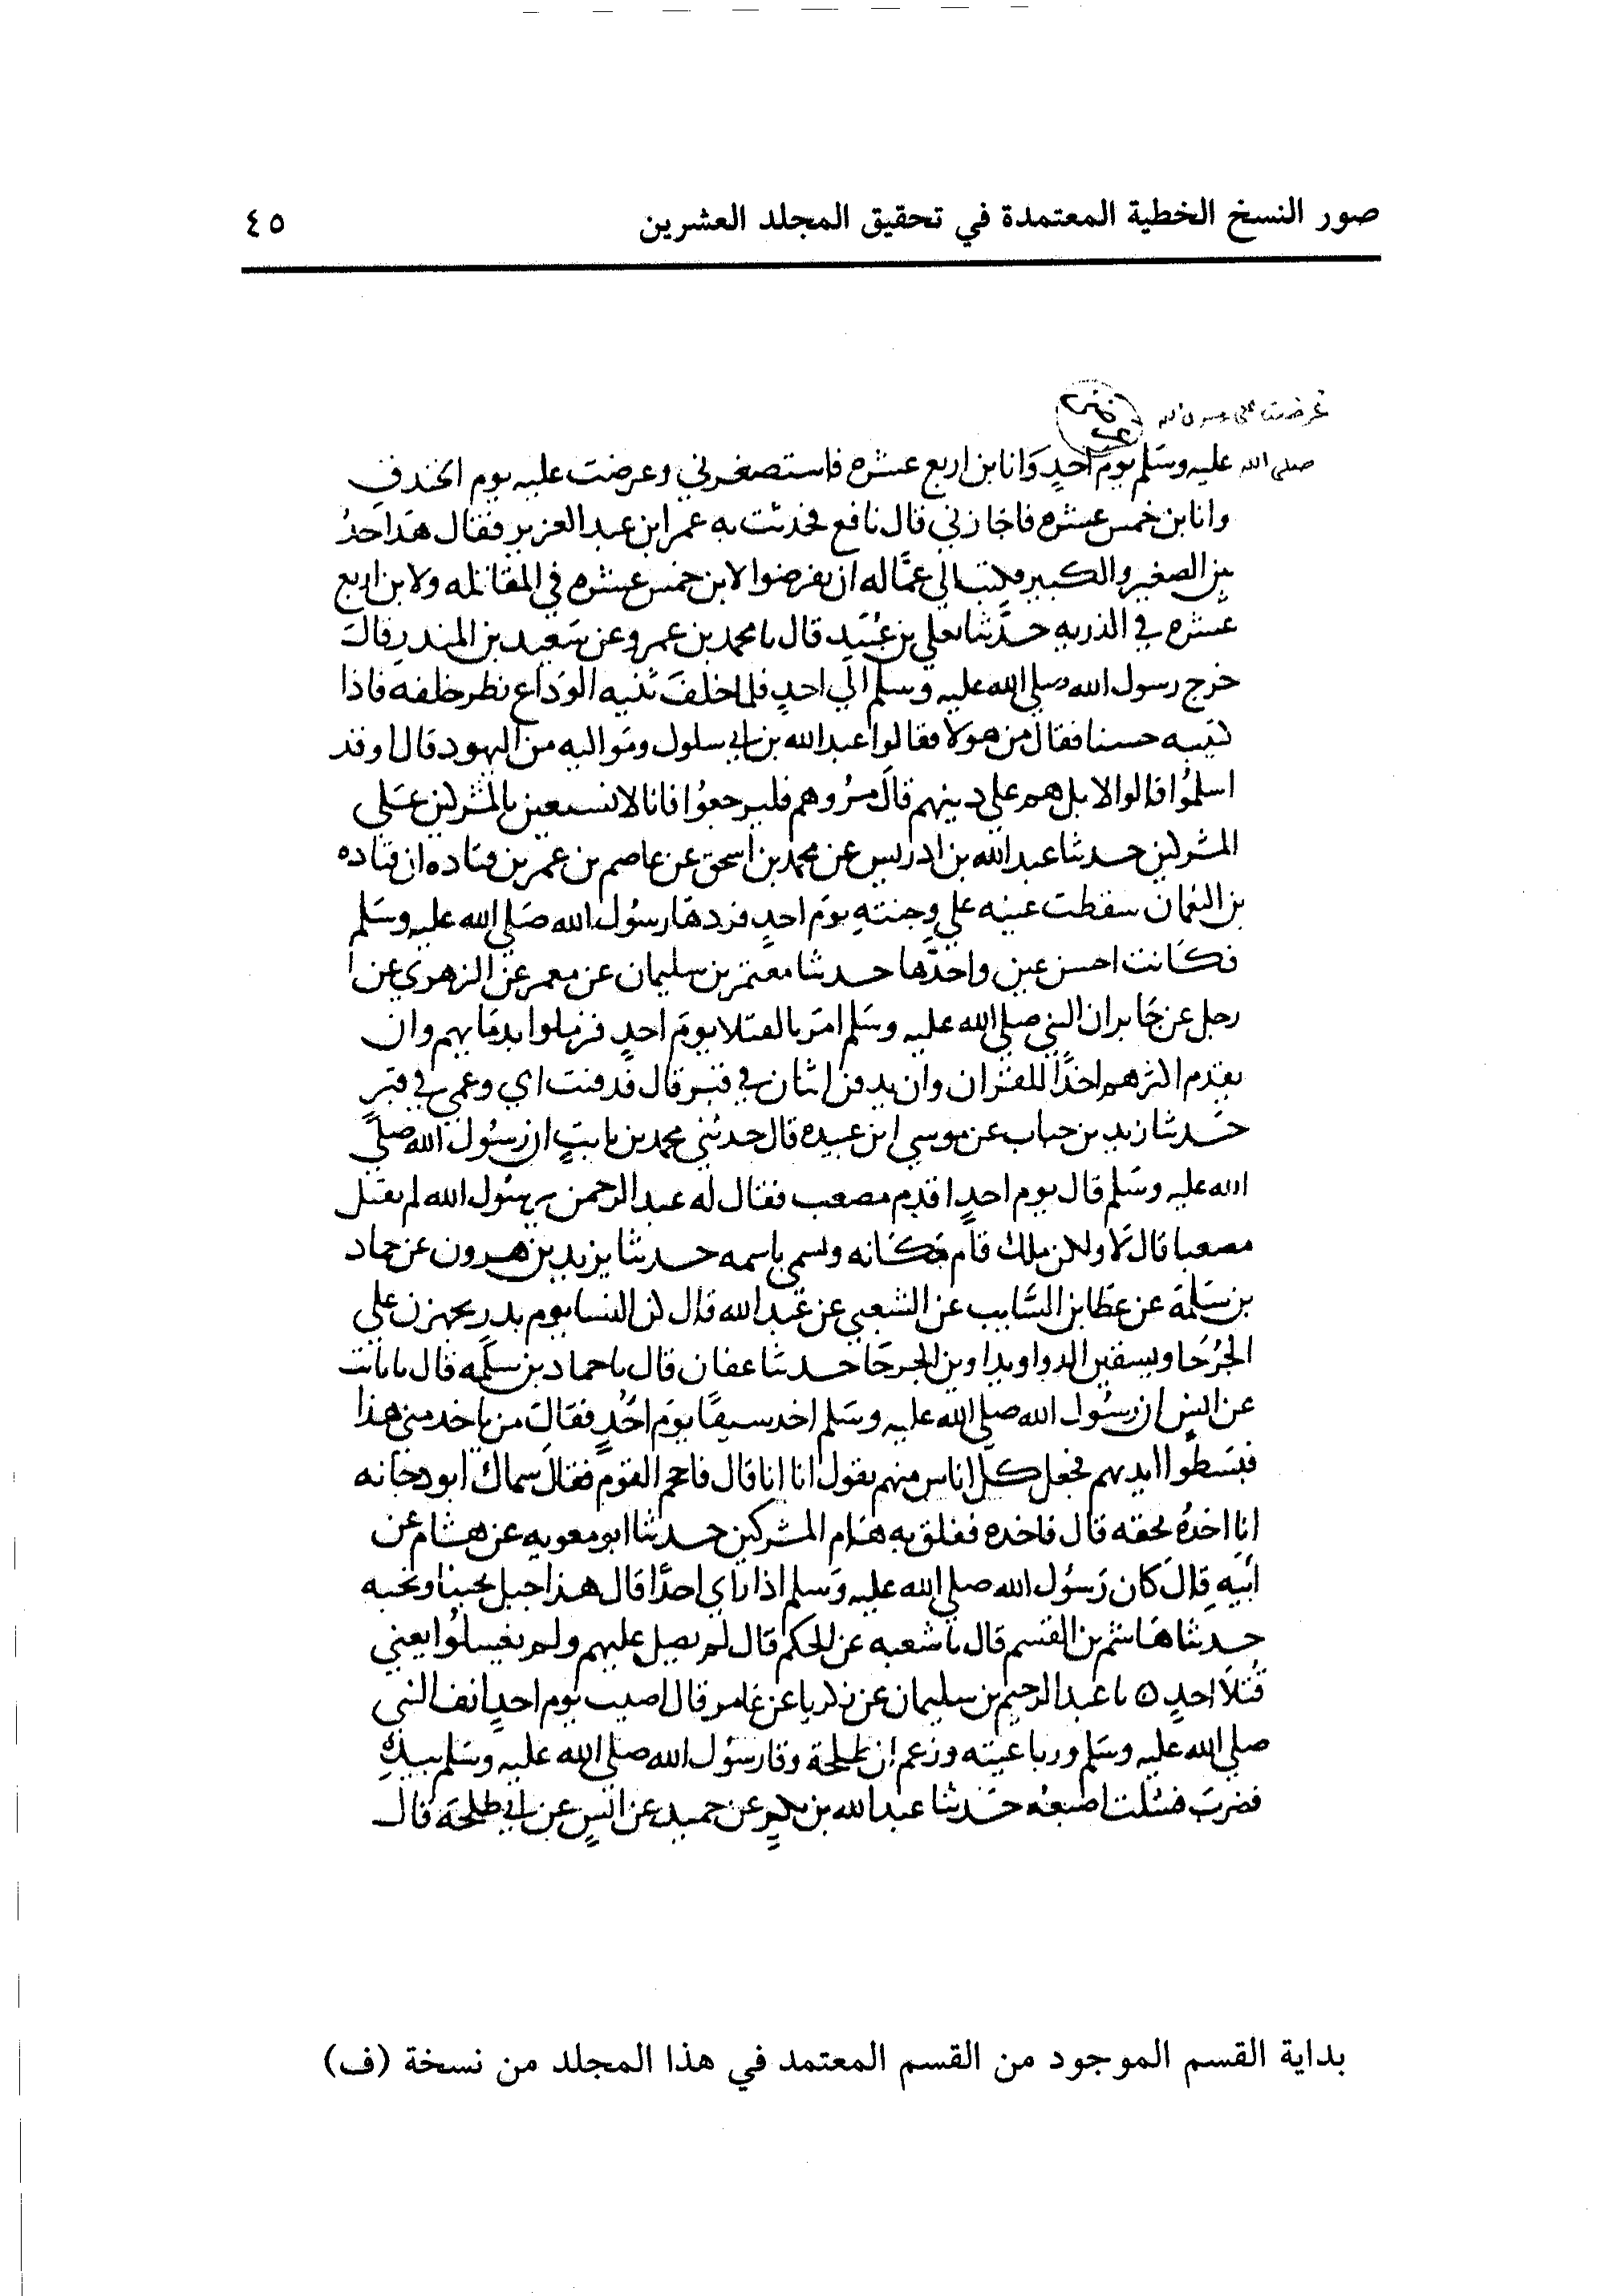 صور النسخ الخطية المعتمدة في تحقيق المجلد العشرين
٤٥
عرضت على
صلى الله عليه وسلم يوم احدٍ وانا بن اربع عشره فاستصغرني وعرضت عليه يوم الخندق
وانا بن خمس عشره فاجازني قال نافع فحدثت به عمر ابن عبد العزيز فقال هذا حد
بين الصغير والكبير فكتب الي عماله ان يفرضوا لابن خمس عشره في المقاتله ولابن اربع
عشره في الذريه حدثنا يعلي بن عُبَيد قال نا محمد بن عمرو عن سَعيد بن المنذر قال
خرج رسول الله صلي الله عليه وسلم الي احدٍ فلما خلف ثنيه الوداع نظر خلفه فاذا
كتيبه حسنا فقال من هولا فقالوا عبد الله بن ابي سلول ومواليه من اليهود قال اوقد
اسلمُوا قالوا لا بل هم علي دينهم قال مروهم فليرجعوا فانا لا نستعين بالمشركين عَلي
المشركين حدثنا عبد الله بن ادريس عن محمد بن اسحق عن عاصم بن عمر بن قتاده ان قتاده
بن النعمان سقطت عينه علي وجنتهِ يوم احدٍ فردها رسُول الله صَلي الله عليه وسَلم
فكانت احسن عين واحدَّها حدثنا معتمر بن سليمان عن معمر عن الزهري عن ا
رجل عن جَابر ان النبي صلي الله عليه وسَلم امَر بالقتلا يومَ احدٍ فزملوا بدمَايهم وان
يقدم اكثرهم اخذًا للقران وان يدفن اثنان في قبر قال فدفنت ابي وعمي في قبرٍ
حَدثنا زيد بن حباب عن موسي ابن عبيده قال حدثني محمد بن ثابتٍ ان رسُول الله صلي
الله عليه وسَلم قال يوم احدٍ اقدم مصعب فقال له عبد الرحمن يرسُول الله لم يقتل
مصعبا قال لا ولكن ملك قام مكانه وتسمي باسمه حدثنا يزيد بن هرون عن حماد
بن سَلمة عن عطا بن السَّايب عن الشعبي عن عَبد الله قال كن النسا يوم بدرٍ يجهزن علي
الجُرحَا ويسقين الدوا ويداوين الجرحَا حدثنا عفان قال نا حماد بن سلَمه قال نا ثابت
عن انسٍ ان رسُول الله صلي الله عليه وسَلم اخد سيفًا يومَ احُدٍ فقال من ياخد مني هذا
فبسَطوا ايديهم فجعل كل اناس منهم يقول انا انا قال فاحجم القوم فقال سماك ابو دجانه
انا اخذهُ بحقه قال فاخده ففلق به هام المشركين حدثنا ابو معويه عن هشام عن
ابيهِ قال كان رَسُول الله صلي الله عليه وسلم اذا راي احدًا قال هذا جبل يحبنا ونحبه
حدثنا هاشم بن القسم قال نا شعبه عن الحكم قال لم يصل عليهم ولم يغسلوا يعني
قُتلا احدٍ ه نا عبد الرحيم بن سليمان عن زكريا عن عامر قال اصيب يوم احدٍ انف النبي
صلي الله عليه وسَلم ورباعيته وزعم ان طلحة وقا رسُول الله صلي الله عليه وسَلم بيدهِ
فضربَ فشلت اصبعُه حَدثنا عبد الله بن بكرٍ عن حميد عن انسٍ عن ابي طلحَة قال
بداية القسم الموجود من القسم المعتمد في هذا المجلد من نسخة (ف)